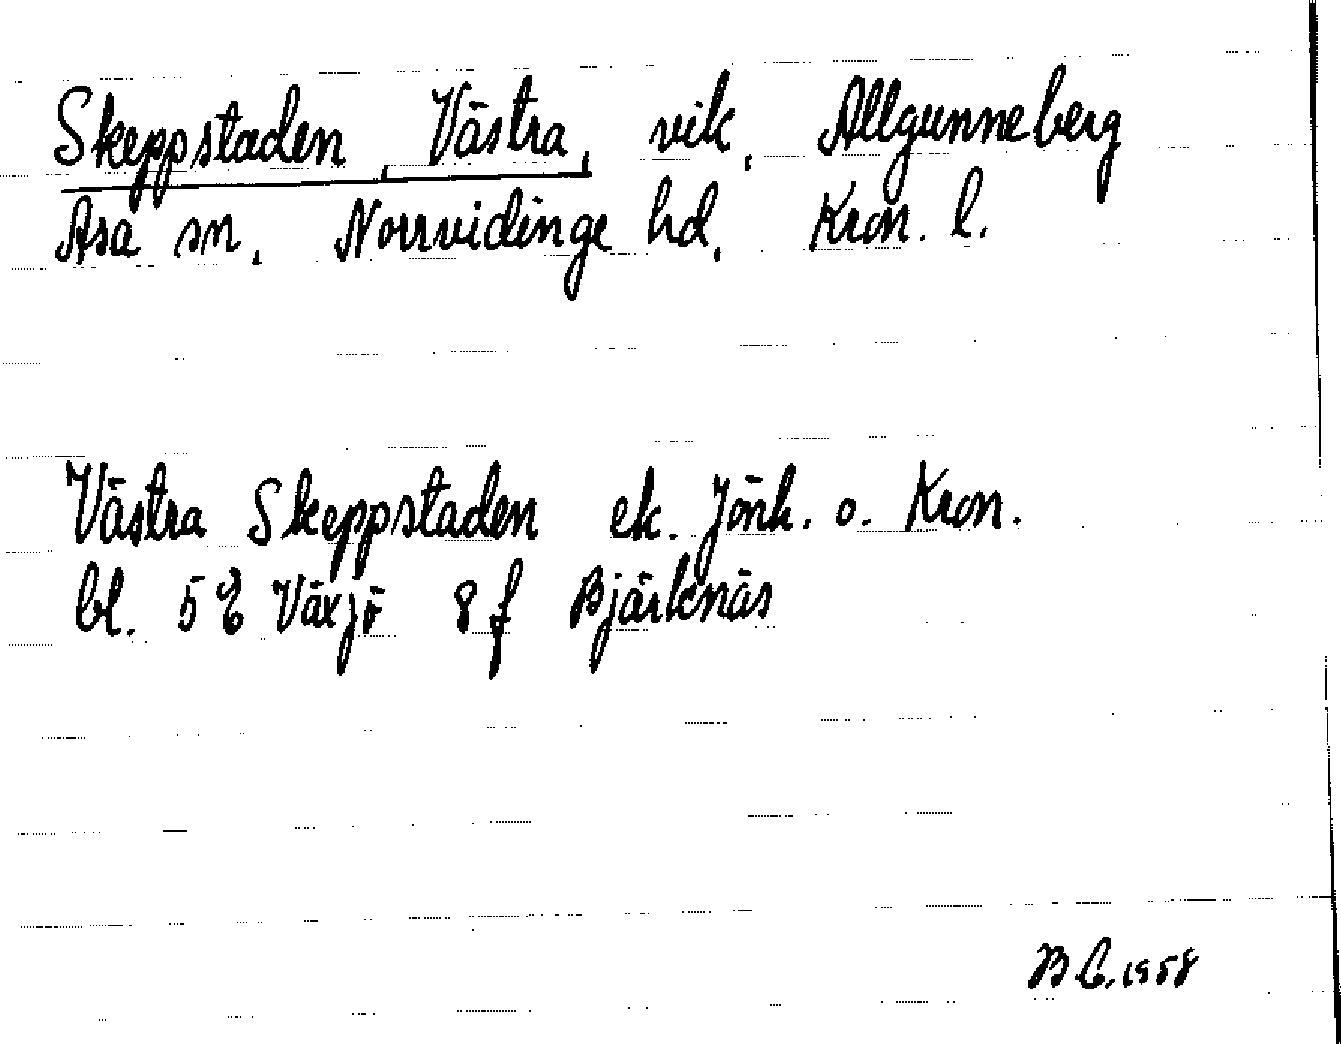 Skeppstaden, Västra, vik, Allgunneberg
Asa sn, Norrvidinge hd, Kron. l.
Västra Skeppstaden ek. Jönk. o. Kron.
bl. 5 Växjö 8 f Bjärknäs
B C. 1958